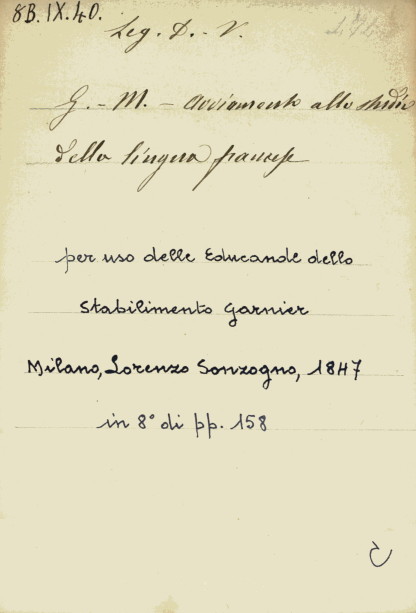 8B.IX.40.
Leg. D. - V.
G. - M. - Avviamento allo studio
della lingua francese
per uso delle Educande dello
Stabilimento Garnier
Milano, Lorenzo Sonzogno, 1847
in 8° di pp. 158